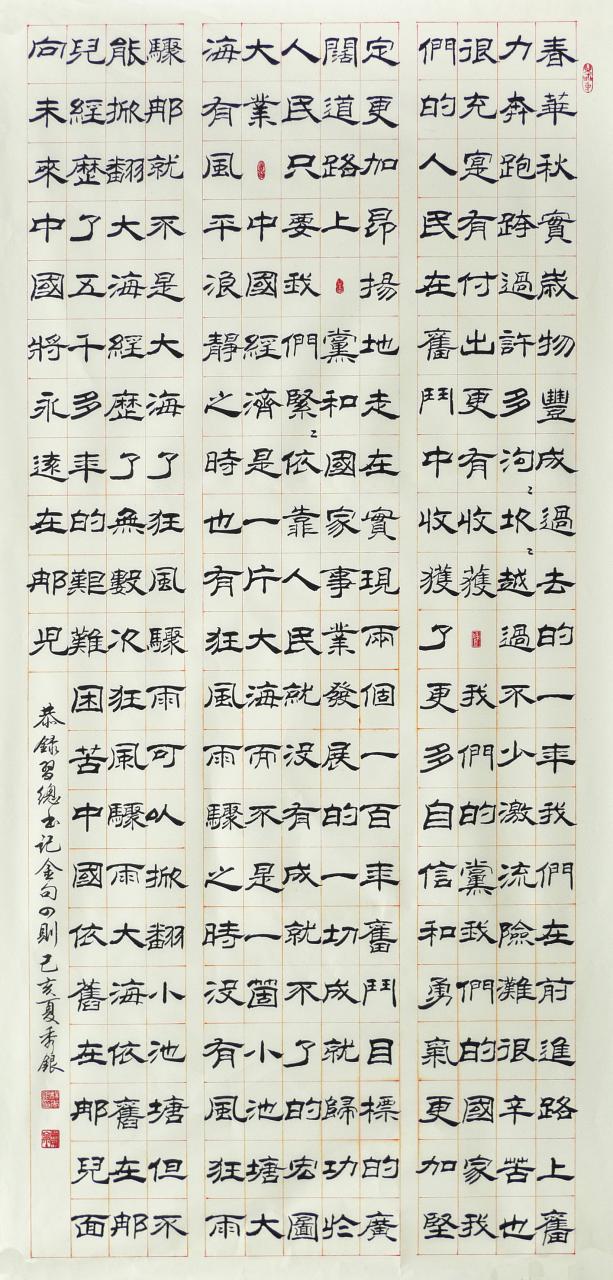 春華秋實歲物豐成過去的一年我們在前進路上奮
力奔跑跨過許多沟〻坎〻越過不少激流險灘很辛苦也
很充寔有付出更有收穫我們的黨我們的國家我
們的人民在奮鬥中收獲了更多自信和勇氣更加堅
定更加昂揚地走在實現兩個一百年奮鬥目標的廣
闊道路上黨和國家事業發展的一切成就歸功於
人民只要我們緊〻依靠人民就沒有成就不了的宏圖
大業中國經濟是一片大海而不是一箇小池塘大
海有風平浪靜之時也有狂風雨驟之時沒有風狂雨
驟那就不是大海了狂風驟雨可以掀翻小池塘但不
能掀翻大海經歷了無數次狂風驟雨大海依舊在那
兒經歷了五千多年的艱難困苦中國依舊在那兒面
向未來中國將永遠在那兒
恭錄習總书记金句四則己亥夏秀銀